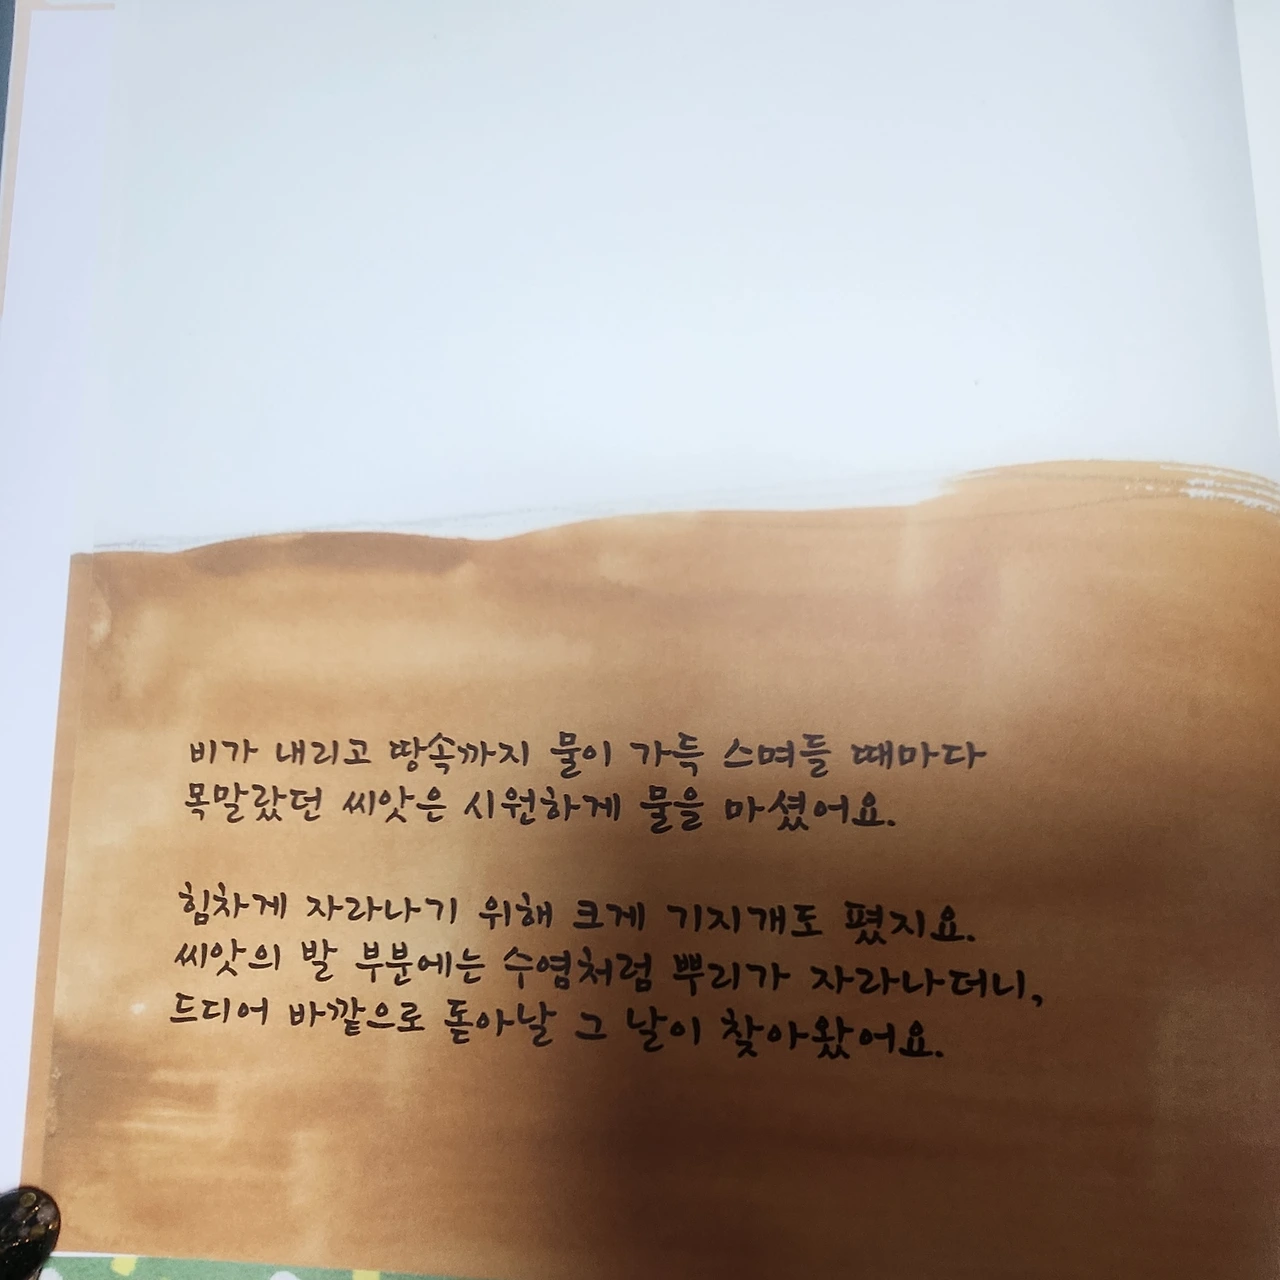 비가 내리고 땅속까지 물이 가득 스며들 때마다
목말랐던 씨앗은 시원하게 물을 마셨어요.
힘차게 자라나기 위해 크게 기지개도 폈지요.
씨앗의 발 부분에는 수염처럼 뿌리가 자라나더니,
드디어 바깥으로 돋아날 그 날이 찾아왔어요.